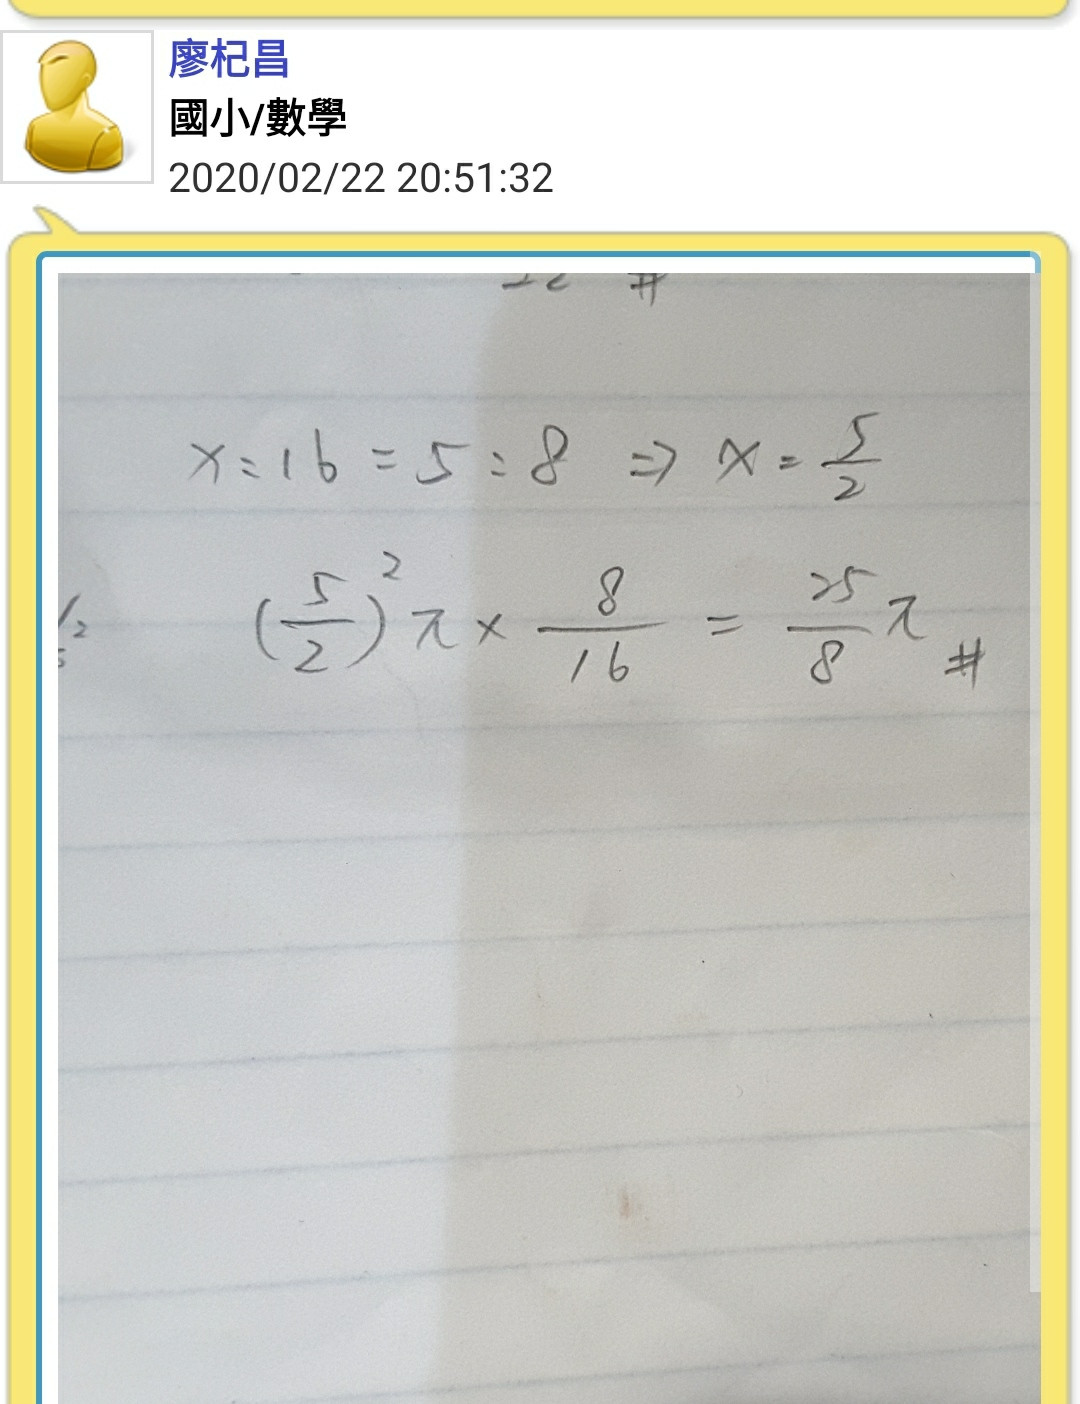 廖杞昌
國小/數學
2020/02/22 20:51:32
#
x:16 = 5:8 ⇒ x = 5/2
(5/2)² π × 8/16 = 25/8 π #